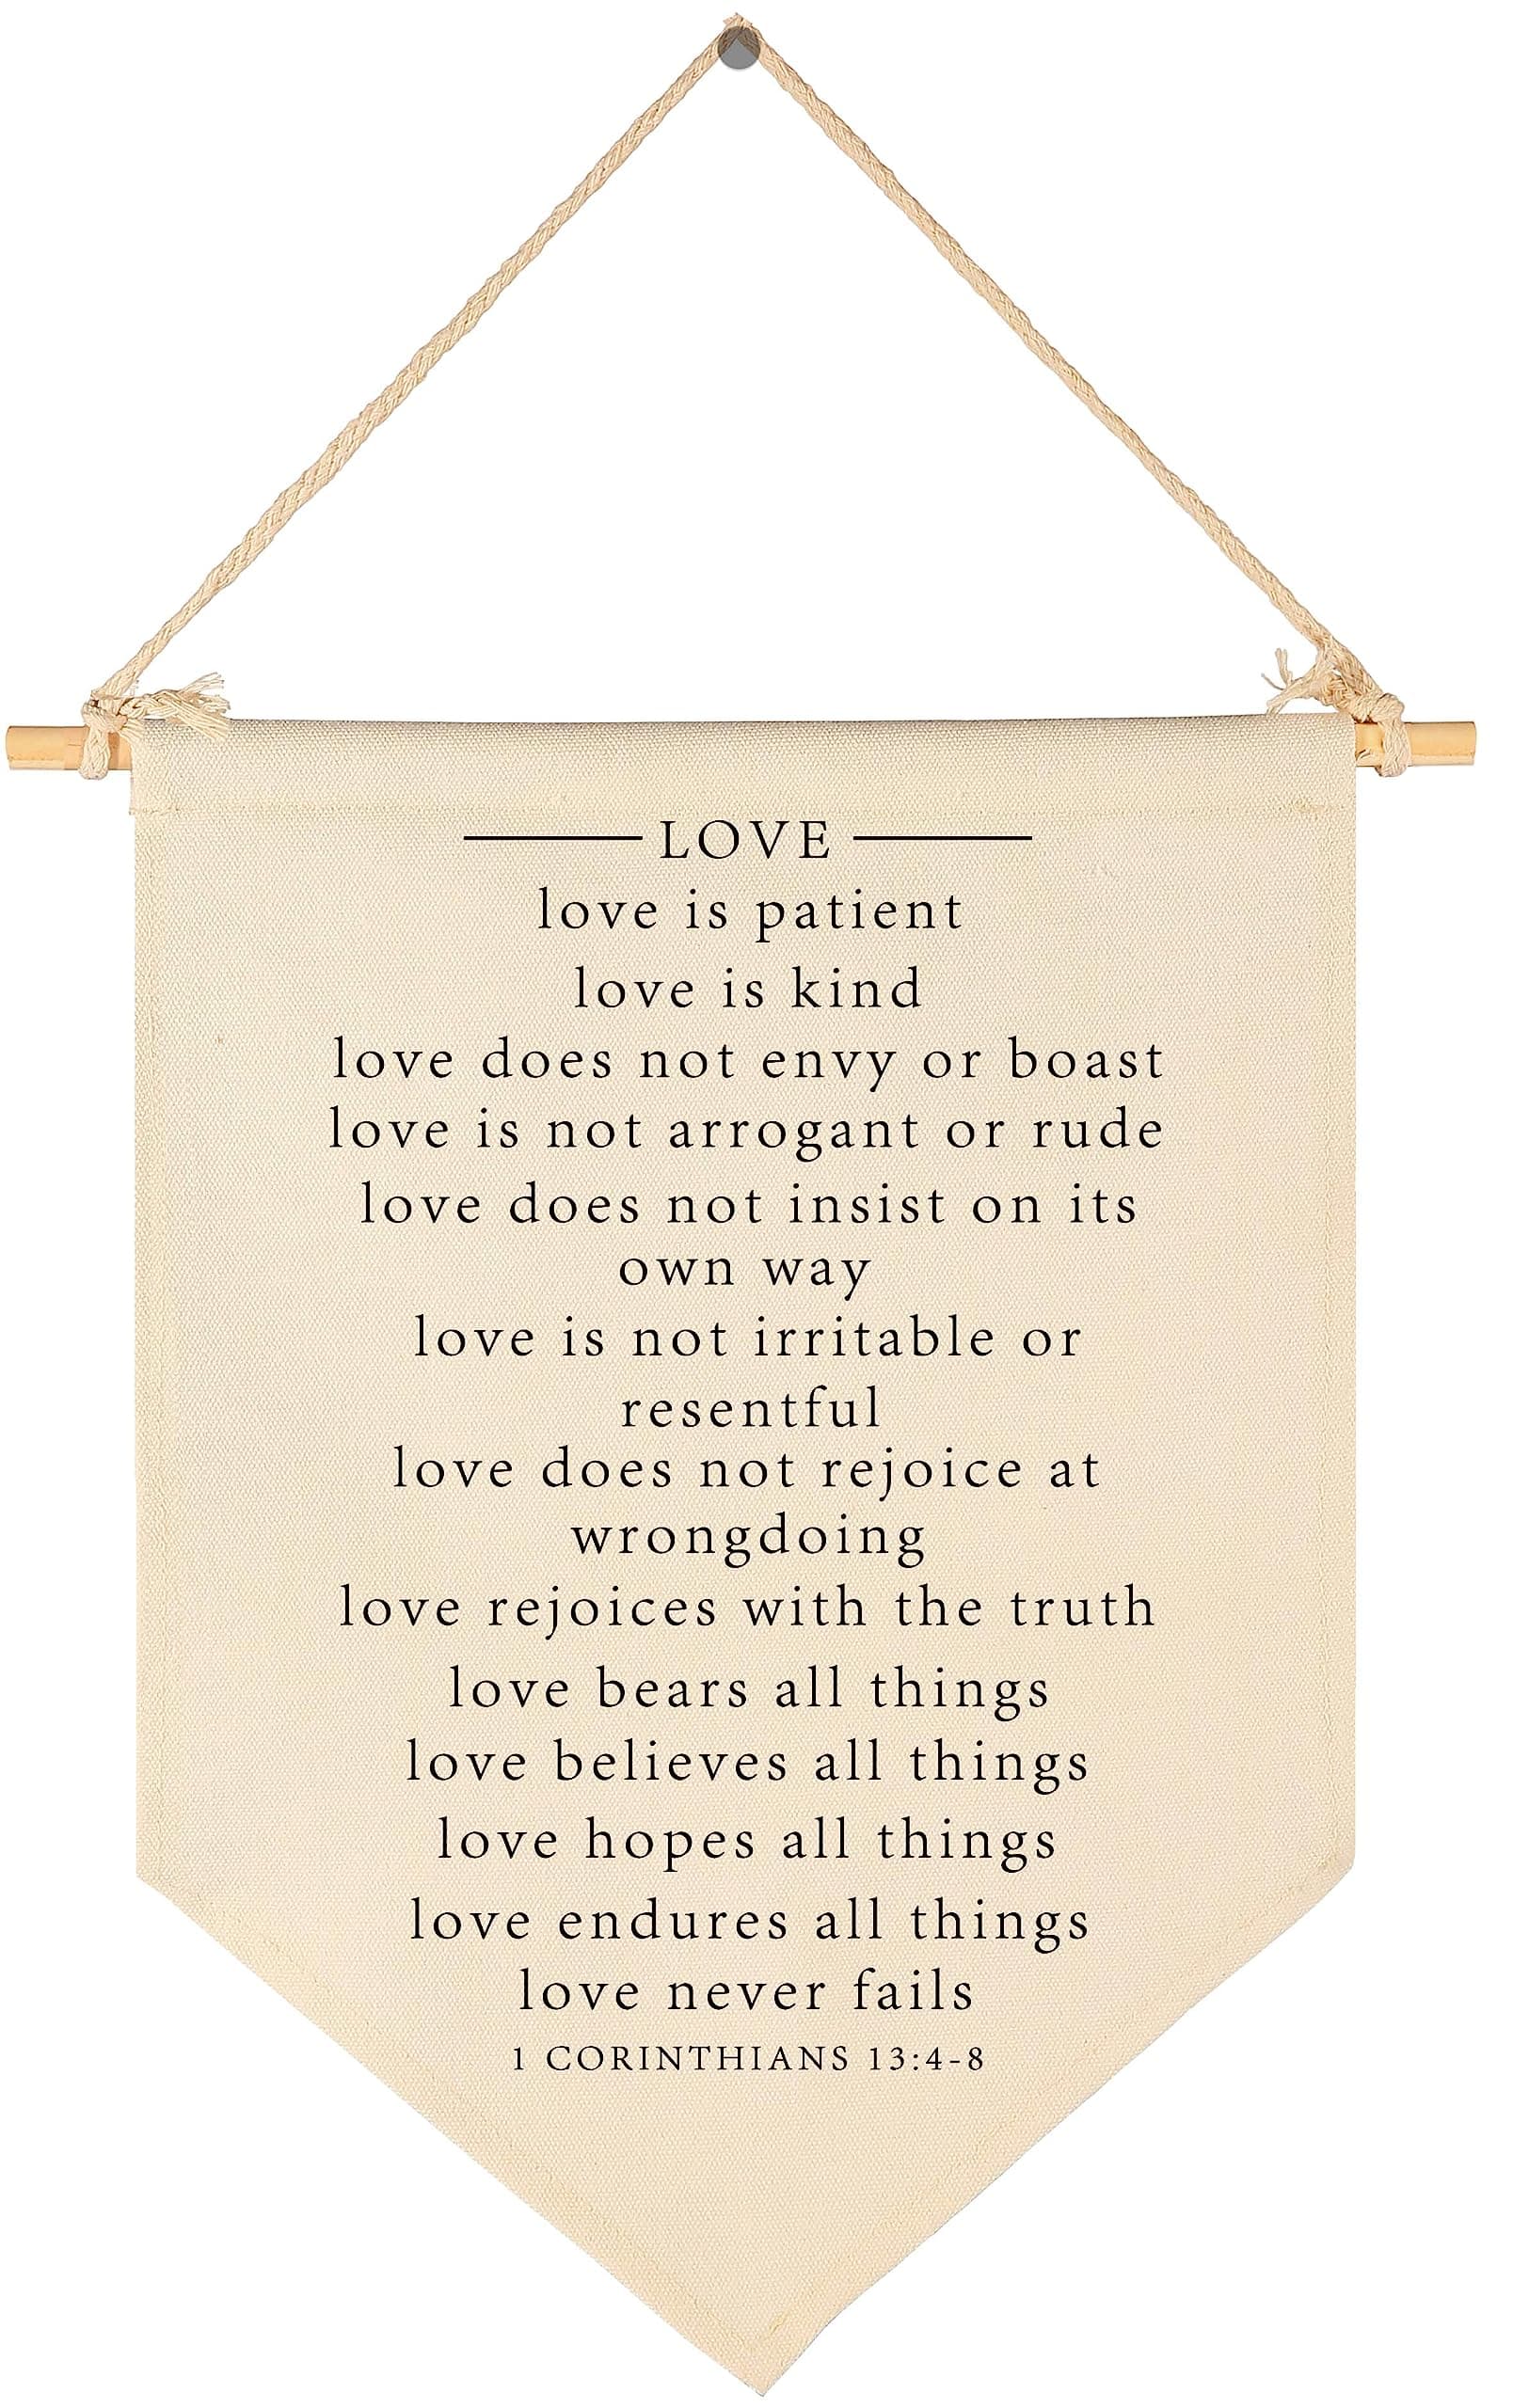 LOVE
love is patient
love is kind
love does not envy or boast
love is not arrogant or rude
love does not insist on its
own way
love is not irritable or
resentful
love does not rejoice at
wrongdoing
love rejoices with the truth
love bears all things
love believes all things
love hopes all things
love endures all things
love never fails
1 CORINTHIANS 13:4-8